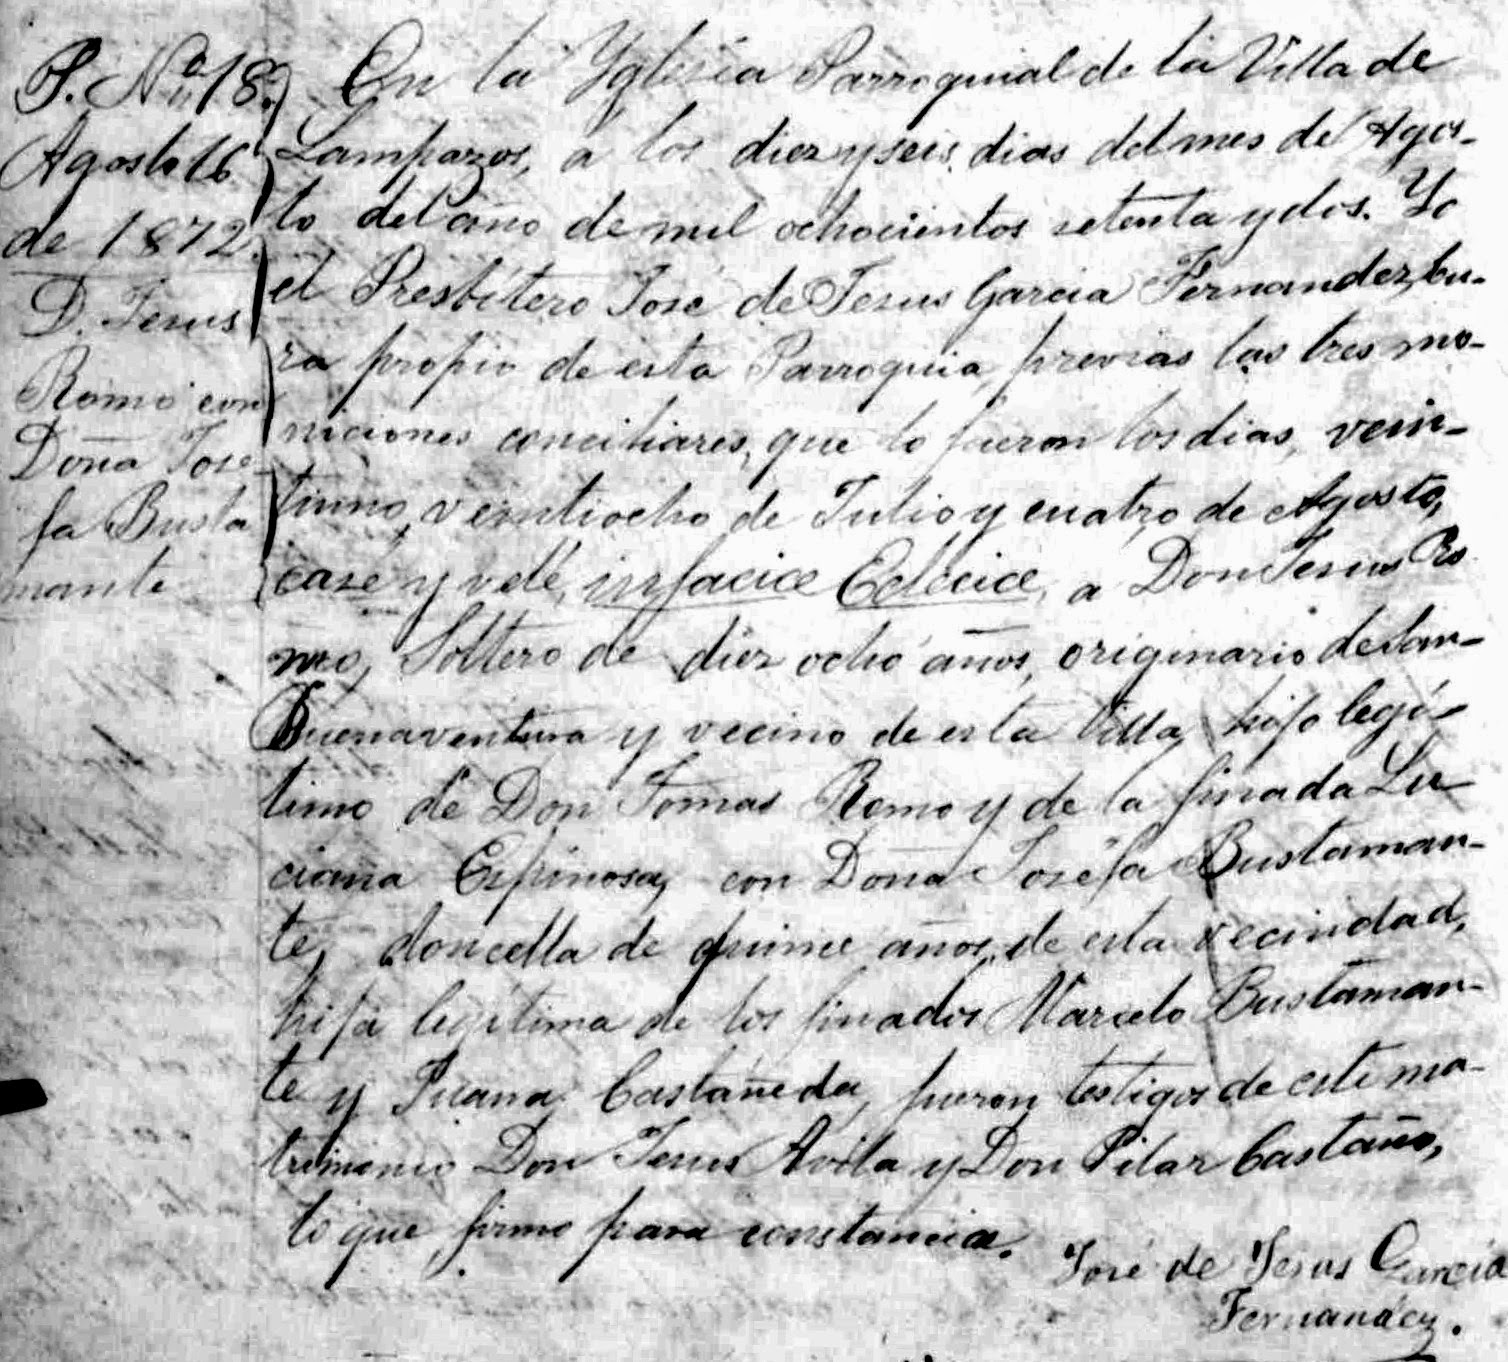 P. No. 18.
Agosto 16
de 1872.
D. Jesus
Romo con
Doña Jose-
fa Busta
mante
En la Yglesia Parroquial de la Villa de
Lampazos, a los diez y seis dias del mes de Agos-
to del año de mil ochocientos setenta y dos. Yo
el Presbitero José de Jesus Garcia Fernandez, Cu-
ra propio de esta Parroquia, previas las tres mo-
niciones conciliares, que lo fueron los dias, vein-
tiuno, veintiocho de Julio y cuatro de Agosto,
casé y velé, infacice Eclecice, a Don Jesus Ro
mo, Soltero de diez ocho años, originario de San-
Buenaventura y vecino de esta Villa, hijo legí-
timo de Don Tomas Romo y de la finada Lu-
ciana Espinosa, con Doña Josefa Bustaman-
te, doncella de quince años, de esta vecindad,
hija legítima de los finados Marcelo Bustaman-
te y Juana Castañeda, fueron testigos de este ma-
trimonio Don Jesus Avila y Don Pilar Castaño,
lo que firmo para constancia.
José de Jesus Garcia
Fernandez.